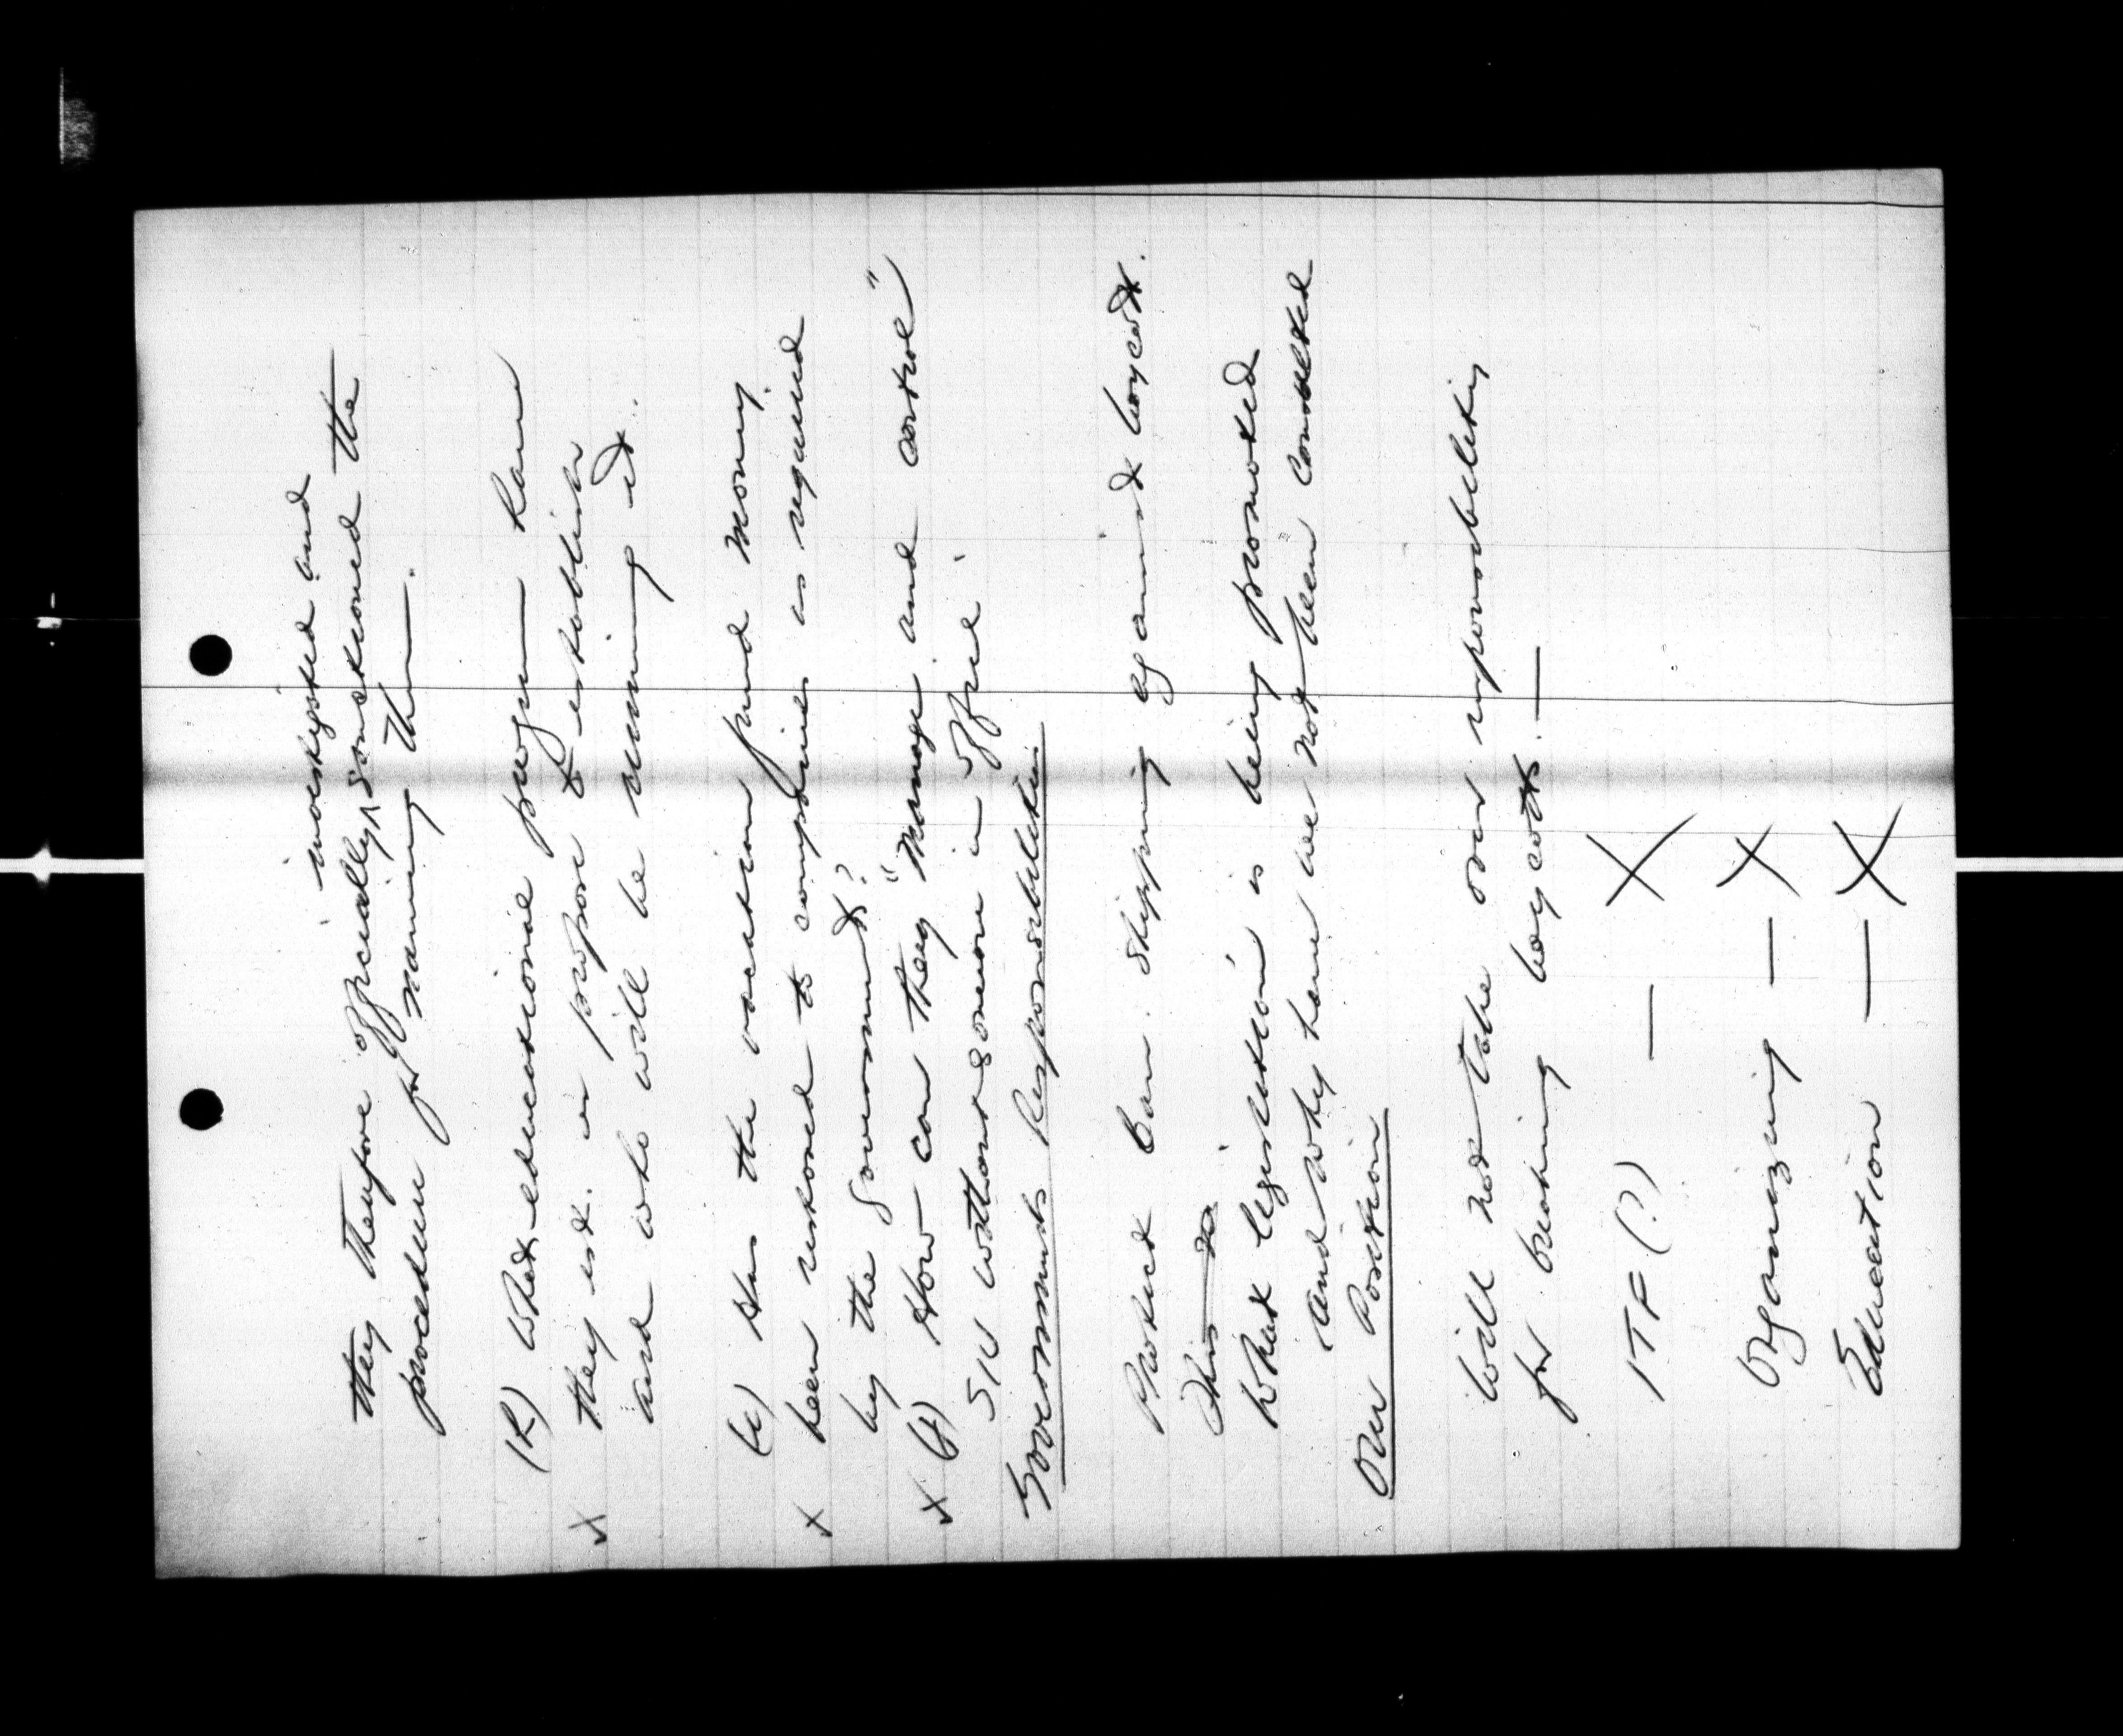 investigated and
they therefore officially sanctioned the
procedure for naming them.
(h) What educational program have
x they est. or propose to establish
and who will be running it.
(i) Has the vacation fund money
x been restored to companies as required
by the Government?
x (j) How can they "manage and control"
SIU without someone in office.
Governments Responsibilities
Protect Can. shipping against boycott.
This is
What legislation is being promoted
and why have we not been consulted
Our Position
Will not take over responsibility
for breaking boycott. —
ITF (?) — X
Organizing — X
Education — X